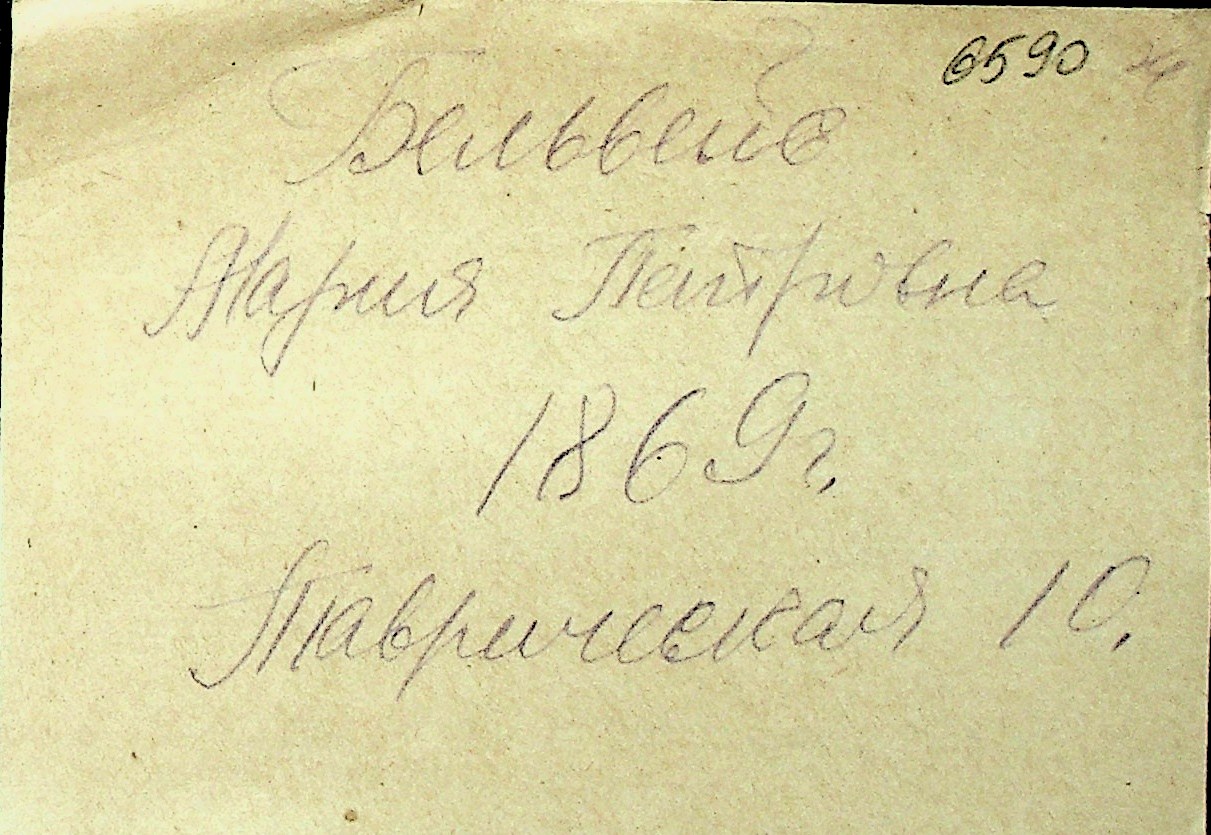 6590
Бельвейс
Мария Петровна
1869 г.
Таврическая 10.